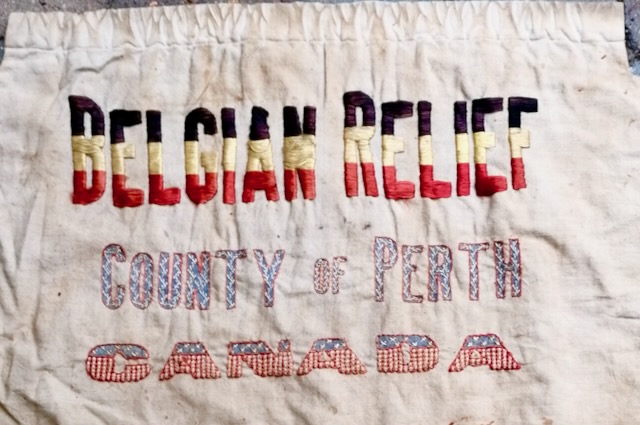 BELGIAN RELIEF
COUNTY OF PERTH
CANADA